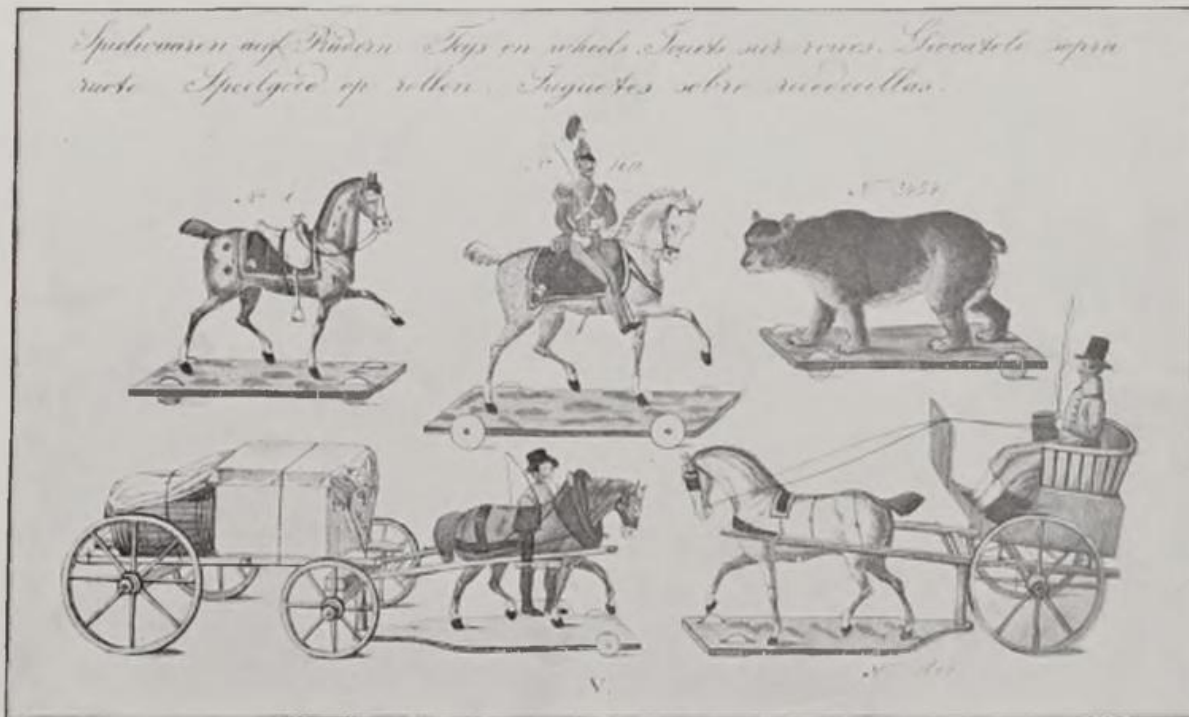 Spielwaaren auf Rädern. Toys on wheels. Jouets sur roues. Giocatoli sopra
ruote. Speelgoed op rollen. Juguetes sobre
Nº
Nº
Nº
Nº
V.